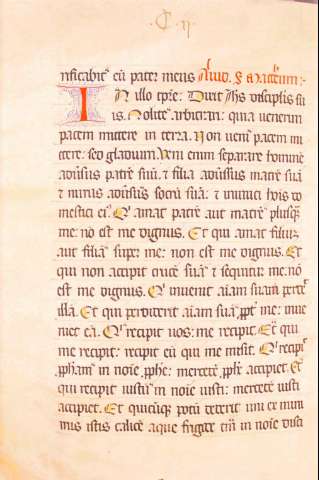 ·C·ij·
rificabit eu pater meus Aliud. S. Matheum:·
IN illo tpre: Dixit Ihs disciplis su
is. Nolite arbitrari: quia uenerim
pacem mittere in terra. Non ueni pacem mi
ttere: sed gladium. Veni enim separare homine
aduersus patre suu: et filia aduersus matre sua
et nurus aduersus socru sua: et inimici hois do
mestici ei. Qi amat patre aut matre plusq
me: no est me dignus. Et qui amat filiu
aut filia super me: non est me dignus. Et
qui non accipit cruce sua et sequitur me: no
est me dignus. Qi inuenit aiam suam perdet
illa. Et qui perdiderit aiam sua ppt me: inue
niet ea. Qi recipit uos: me recipit. Et qui
me recipit: recipit eu qui me misit. Qi recipit
ppham in noie pphe: mercede pphe accipiet. Et
qui recipit iustu in noie iusti: mercede iusti
accipiet. Et quicuqz potu dederit uni ex mini
mis istis calice aque frigide tm in noie disci